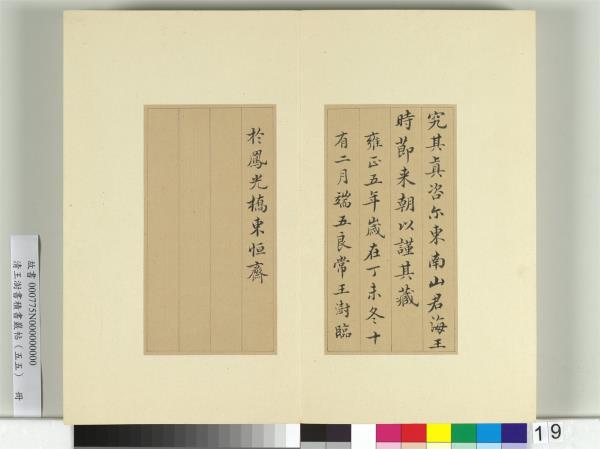 究其真咨尓東南山君海王
時節来朝以謹其藏
雍正五年歲在丁未冬十
有二月端五良常王澍臨
於鳳光橋東恒齋
故書 000775N000000000
清王澍書積書巖帖（五五）　冊
19